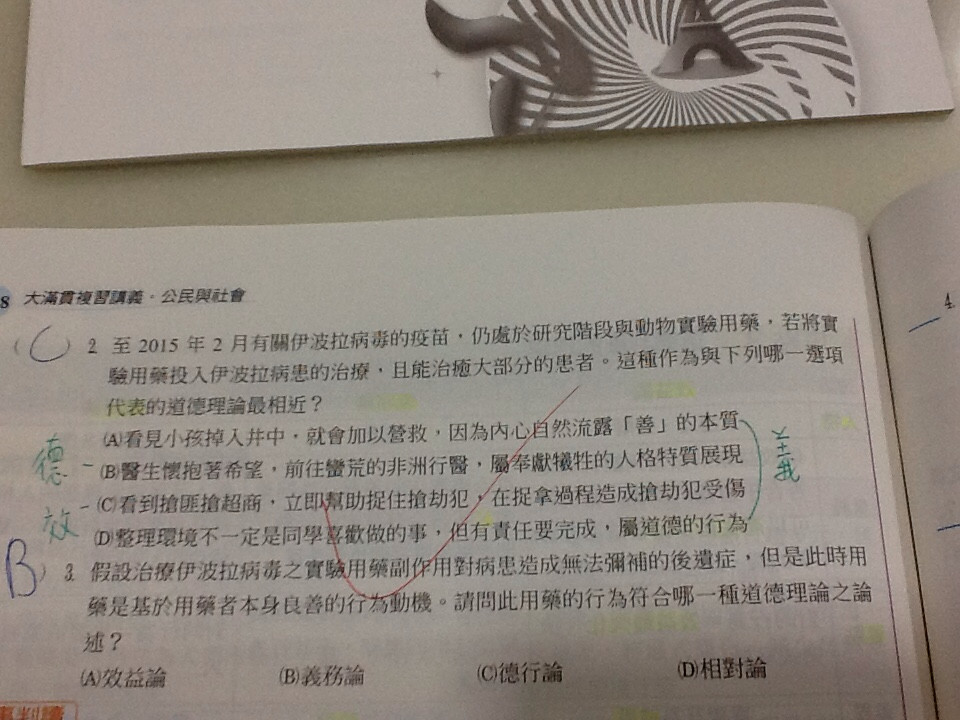 8 大滿貫複習講義．公民與社會
( C ) 2. 至 2015 年 2 月有關伊波拉病毒的疫苗，仍處於研究階段與動物實驗用藥，若將實
驗用藥投入伊波拉病患的治療，且能治癒大部分的患者。這種作為與下列哪一選項
代表的道德理論最相近？
(A)看見小孩掉入井中，就會加以營救，因為內心自然流露「善」的本質
德 (B)醫生懷抱著希望，前往蠻荒的非洲行醫，屬奉獻犧牲的人格特質展現
效 (C)看到搶匪搶超商，立即幫助捉住搶劫犯，在捉拿過程造成搶劫犯受傷
(D)整理環境不一定是同學喜歡做的事，但有責任要完成，屬道德的行為
B ) 3. 假設治療伊波拉病毒之實驗用藥副作用對病患造成無法彌補的後遺症，但是此時用
藥是基於用藥者本身良善的行為動機。請問此用藥的行為符合哪一種道德理論之論
述？
(A)效益論 (B)義務論 (C)德行論 (D)相對論
4.